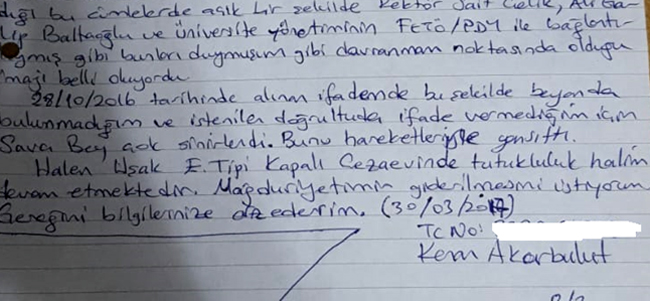 dığı bu cümlelerde açık bir şekilde Rektör Sait Çelik, Ali Ga-
lip Baltaoğlu ve üniversite yönetiminin FETÖ/PDY ile bağlantı-
gibi bunları duymuşum gibi davranmam noktasında olduğu
belli oluyordu.
28/10/2016 tarihinde alınan ifademde bu şekilde beyanda
bulunmadığım ve istenilen doğrultuda ifade vermediğim için
Savcı Bey çok sinirlendi. Bunu hareketleriyle yansıttı.
Halen Uşak E Tipi Kapalı Cezaevinde tutukluluk halim
devam etmektedir. Mağduriyetimin giderilmesini istiyorum
Gereğini bilgilerinize arz ederim. (30/03/2017)
TC NO:
Kerim Akarbulut